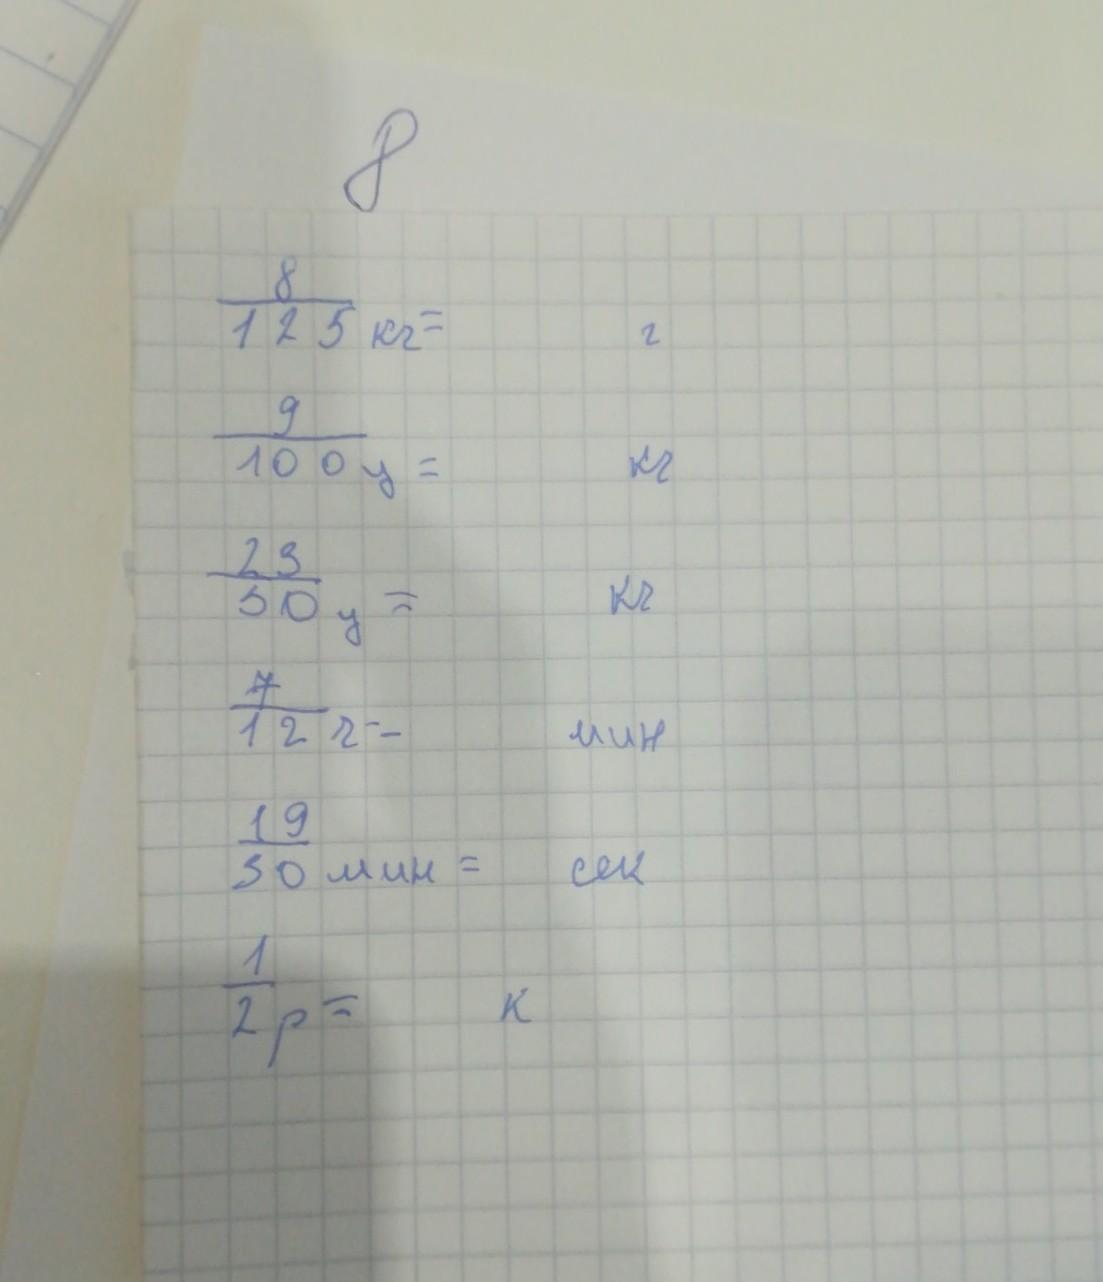 8
8/125 кг= г
9/100 ц = кг
23/50 ц = кг
7/12 ч = мин
19/30 мин = сек
1/2 р = к